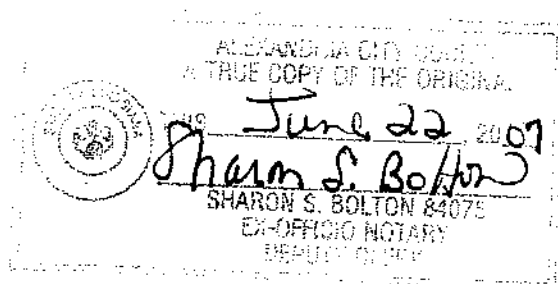 ALEXANDRIA CITY COURT
A TRUE COPY OF THE ORIGINAL
June 22 2007
Sharon S. Bolton
SHARON S. BOLTON 84075
EX-OFFICIO NOTARY
DEPUTY CLERK